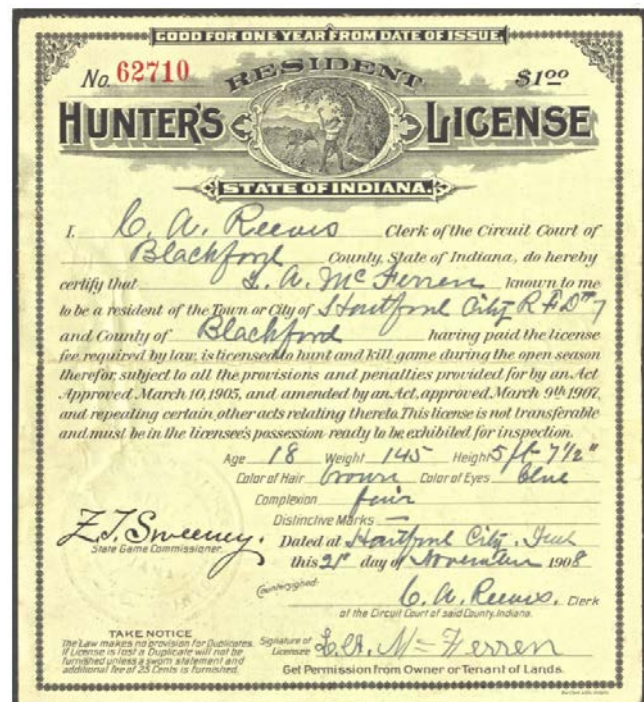 GOOD FOR ONE YEAR FROM DATE OF ISSUE.
No. 62710 RESIDENT $1.00
HUNTER'S LICENSE
STATE OF INDIANA.
I, C. A. Reeves Clerk of the Circuit Court of
Blackford County, State of Indiana, do hereby
certify that L. A. McFerren known to me
to be a resident of the Town or City of Hartford City R F D # 7
and County of Blackford having paid the license
fee required by law, is licensed to hunt and kill game during the open season
therefor, subject to all the provisions and penalties provided for by an Act
Approved March 10, 1905, and amended by an Act, approved March 9th 1907,
and repealing certain other acts relating thereto. This license is not transferable
and must be in the licensee's possession ready to be exhibited for inspection.
Age 18 Weight 145 Height 5 ft 7 1/2"
Color of Hair brown Color of Eyes blue
Complexion fair
Distinctive Marks —
Z. T. Sweeney.
State Game Commissioner.
Dated at Hartford City, Ind
this 21st day of November 1908
Countersigned:
C. A. Reeves. Clerk
of the Circuit Court of said County, Indiana.
TAKE NOTICE
The Law makes no provision for Duplicates.
If License is lost a Duplicate will not be
furnished unless a sworn statement and
additional fee of 25 Cents is furnished.
Signature of
Licensee L. A. McFerren
Get Permission from Owner or Tenant of Lands.